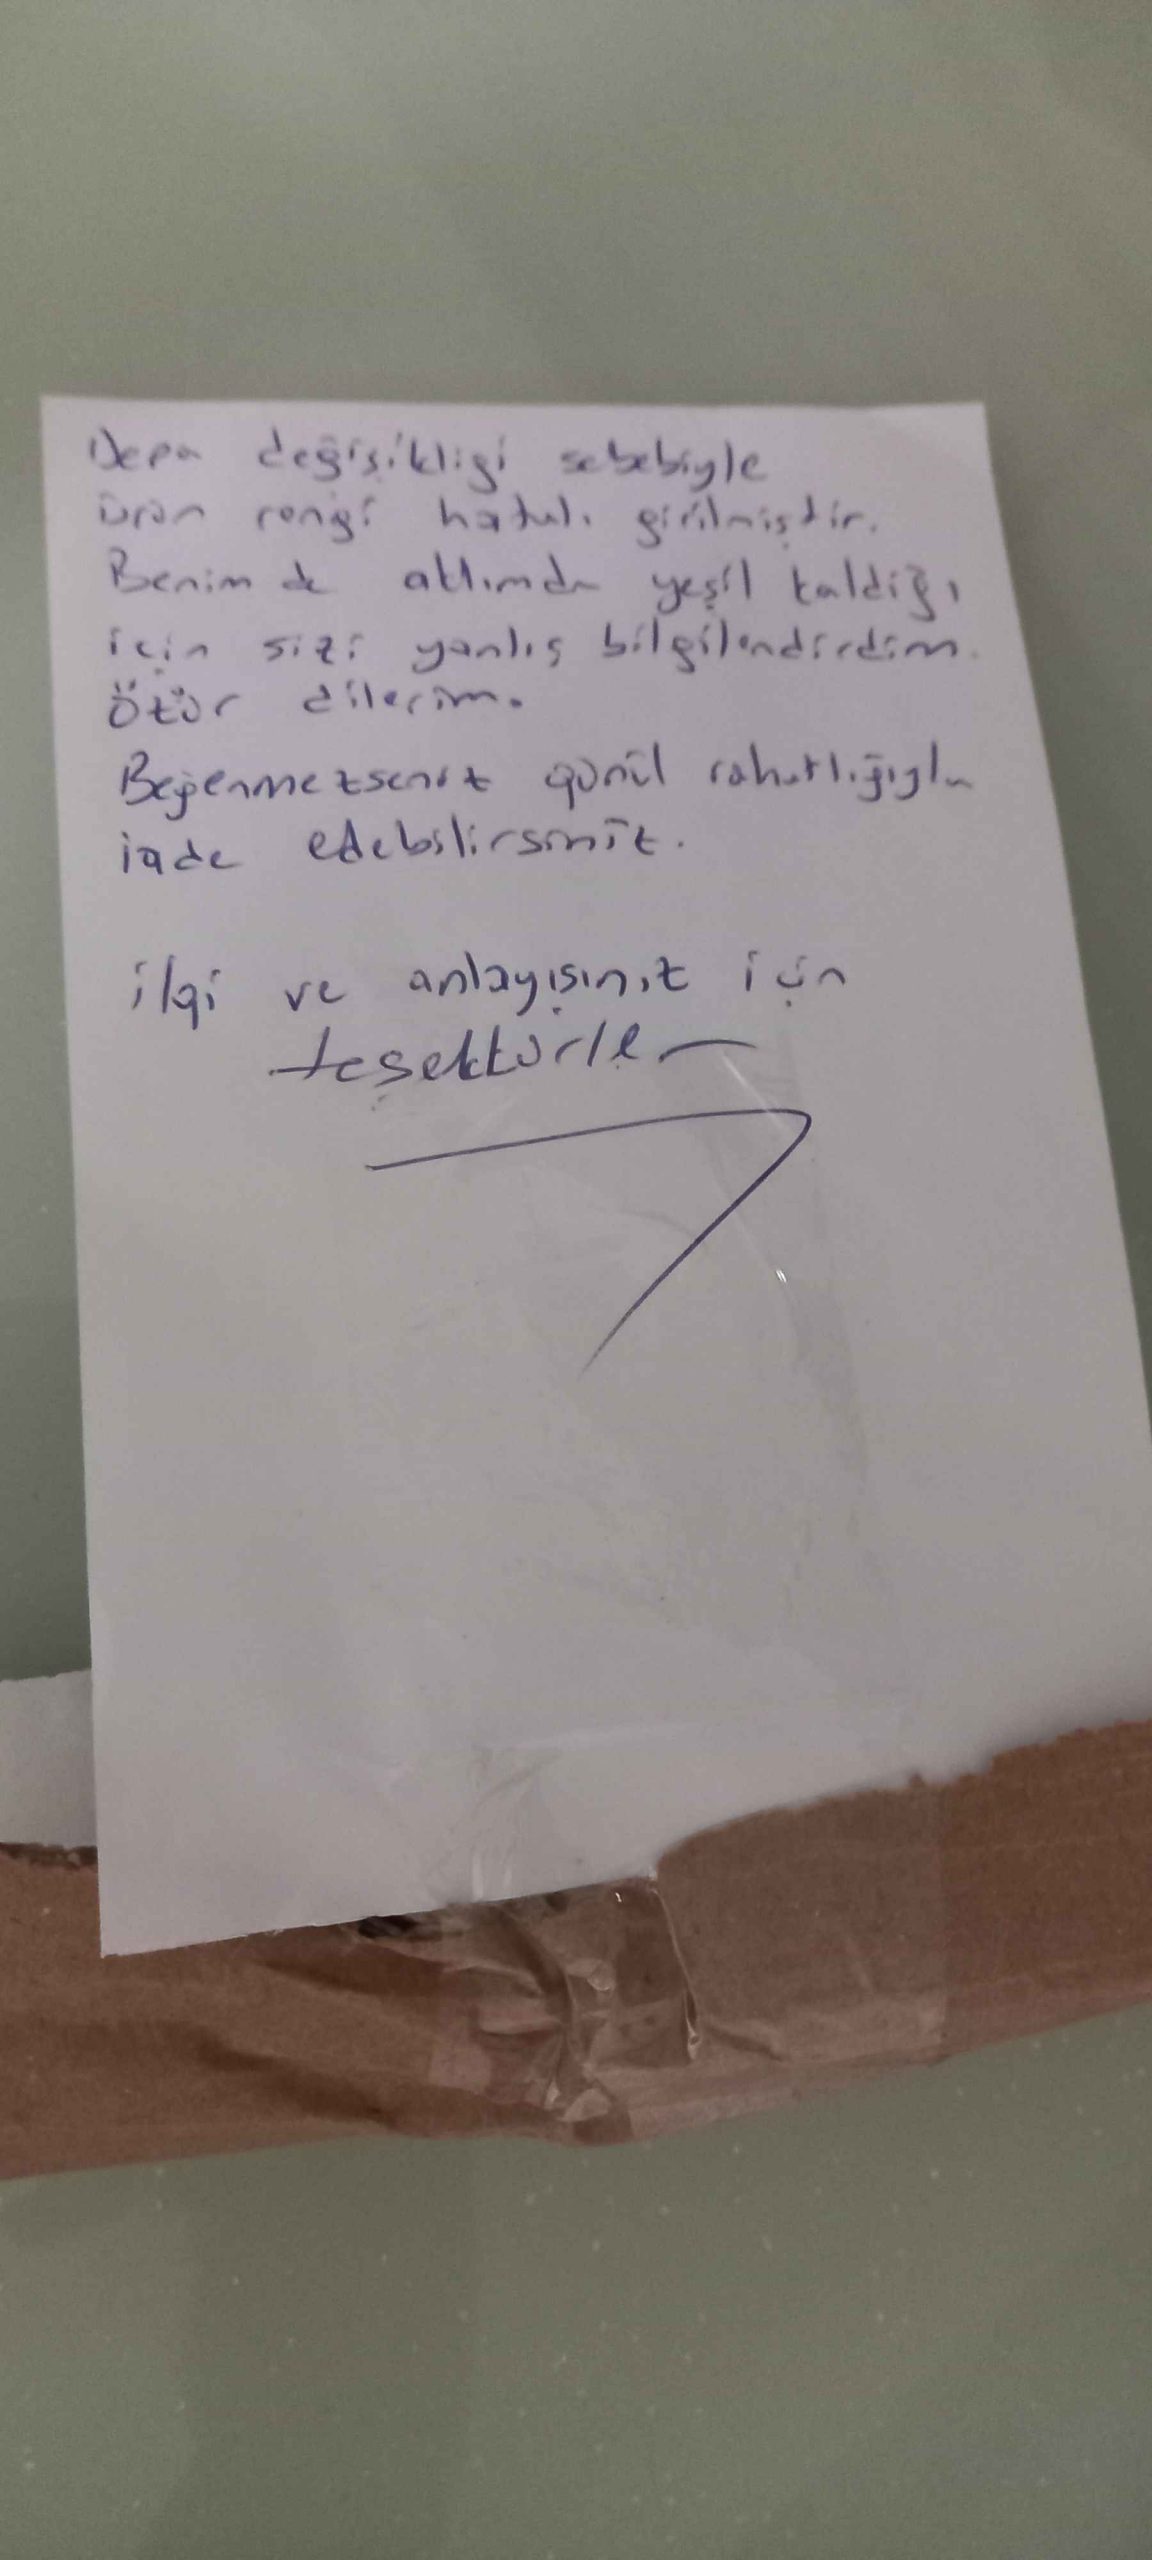 Depo değişikliği sebebiyle
ürün rengi hatalı girilmiştir.
Benim de aklımda yeşil kaldığı
için sizi yanlış bilgilendirdim.
Özür dilerim.
Beğenmezseniz gönül rahatlığıyla
iade edebilirsiniz.
ilgi ve anlayışınız için
teşekkürler